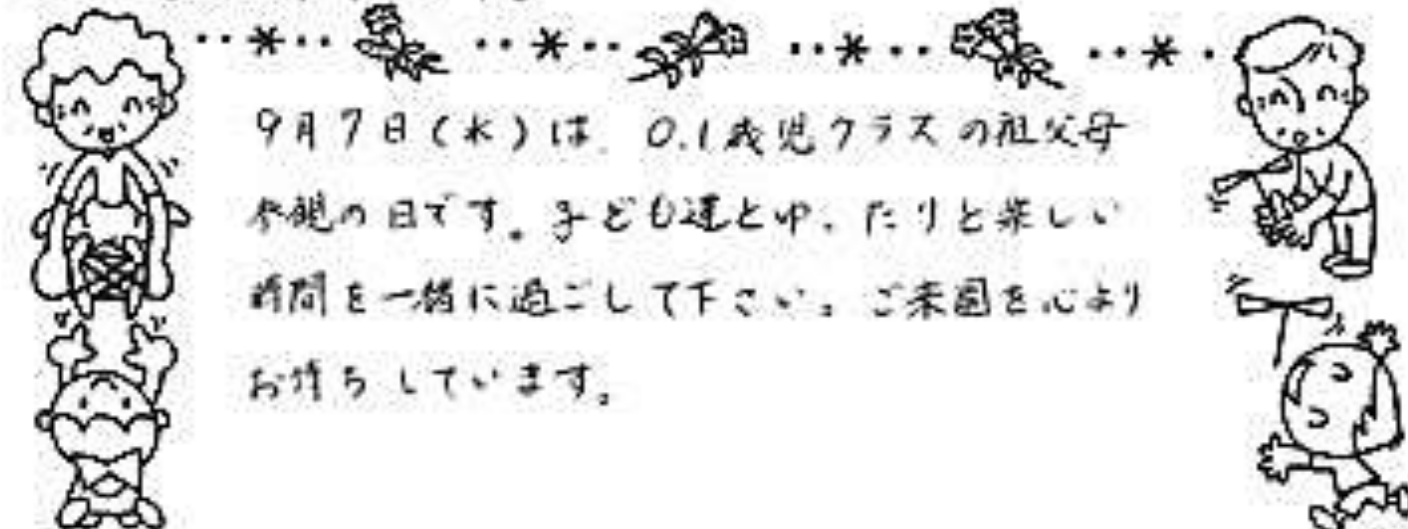 9月7日(水)は、0.1歳児クラスの祖父母
参観の日です。子ども達とゆったりと楽しい
時間を一緒に過ごして下さい。ご来園を心より
お待ちしています。